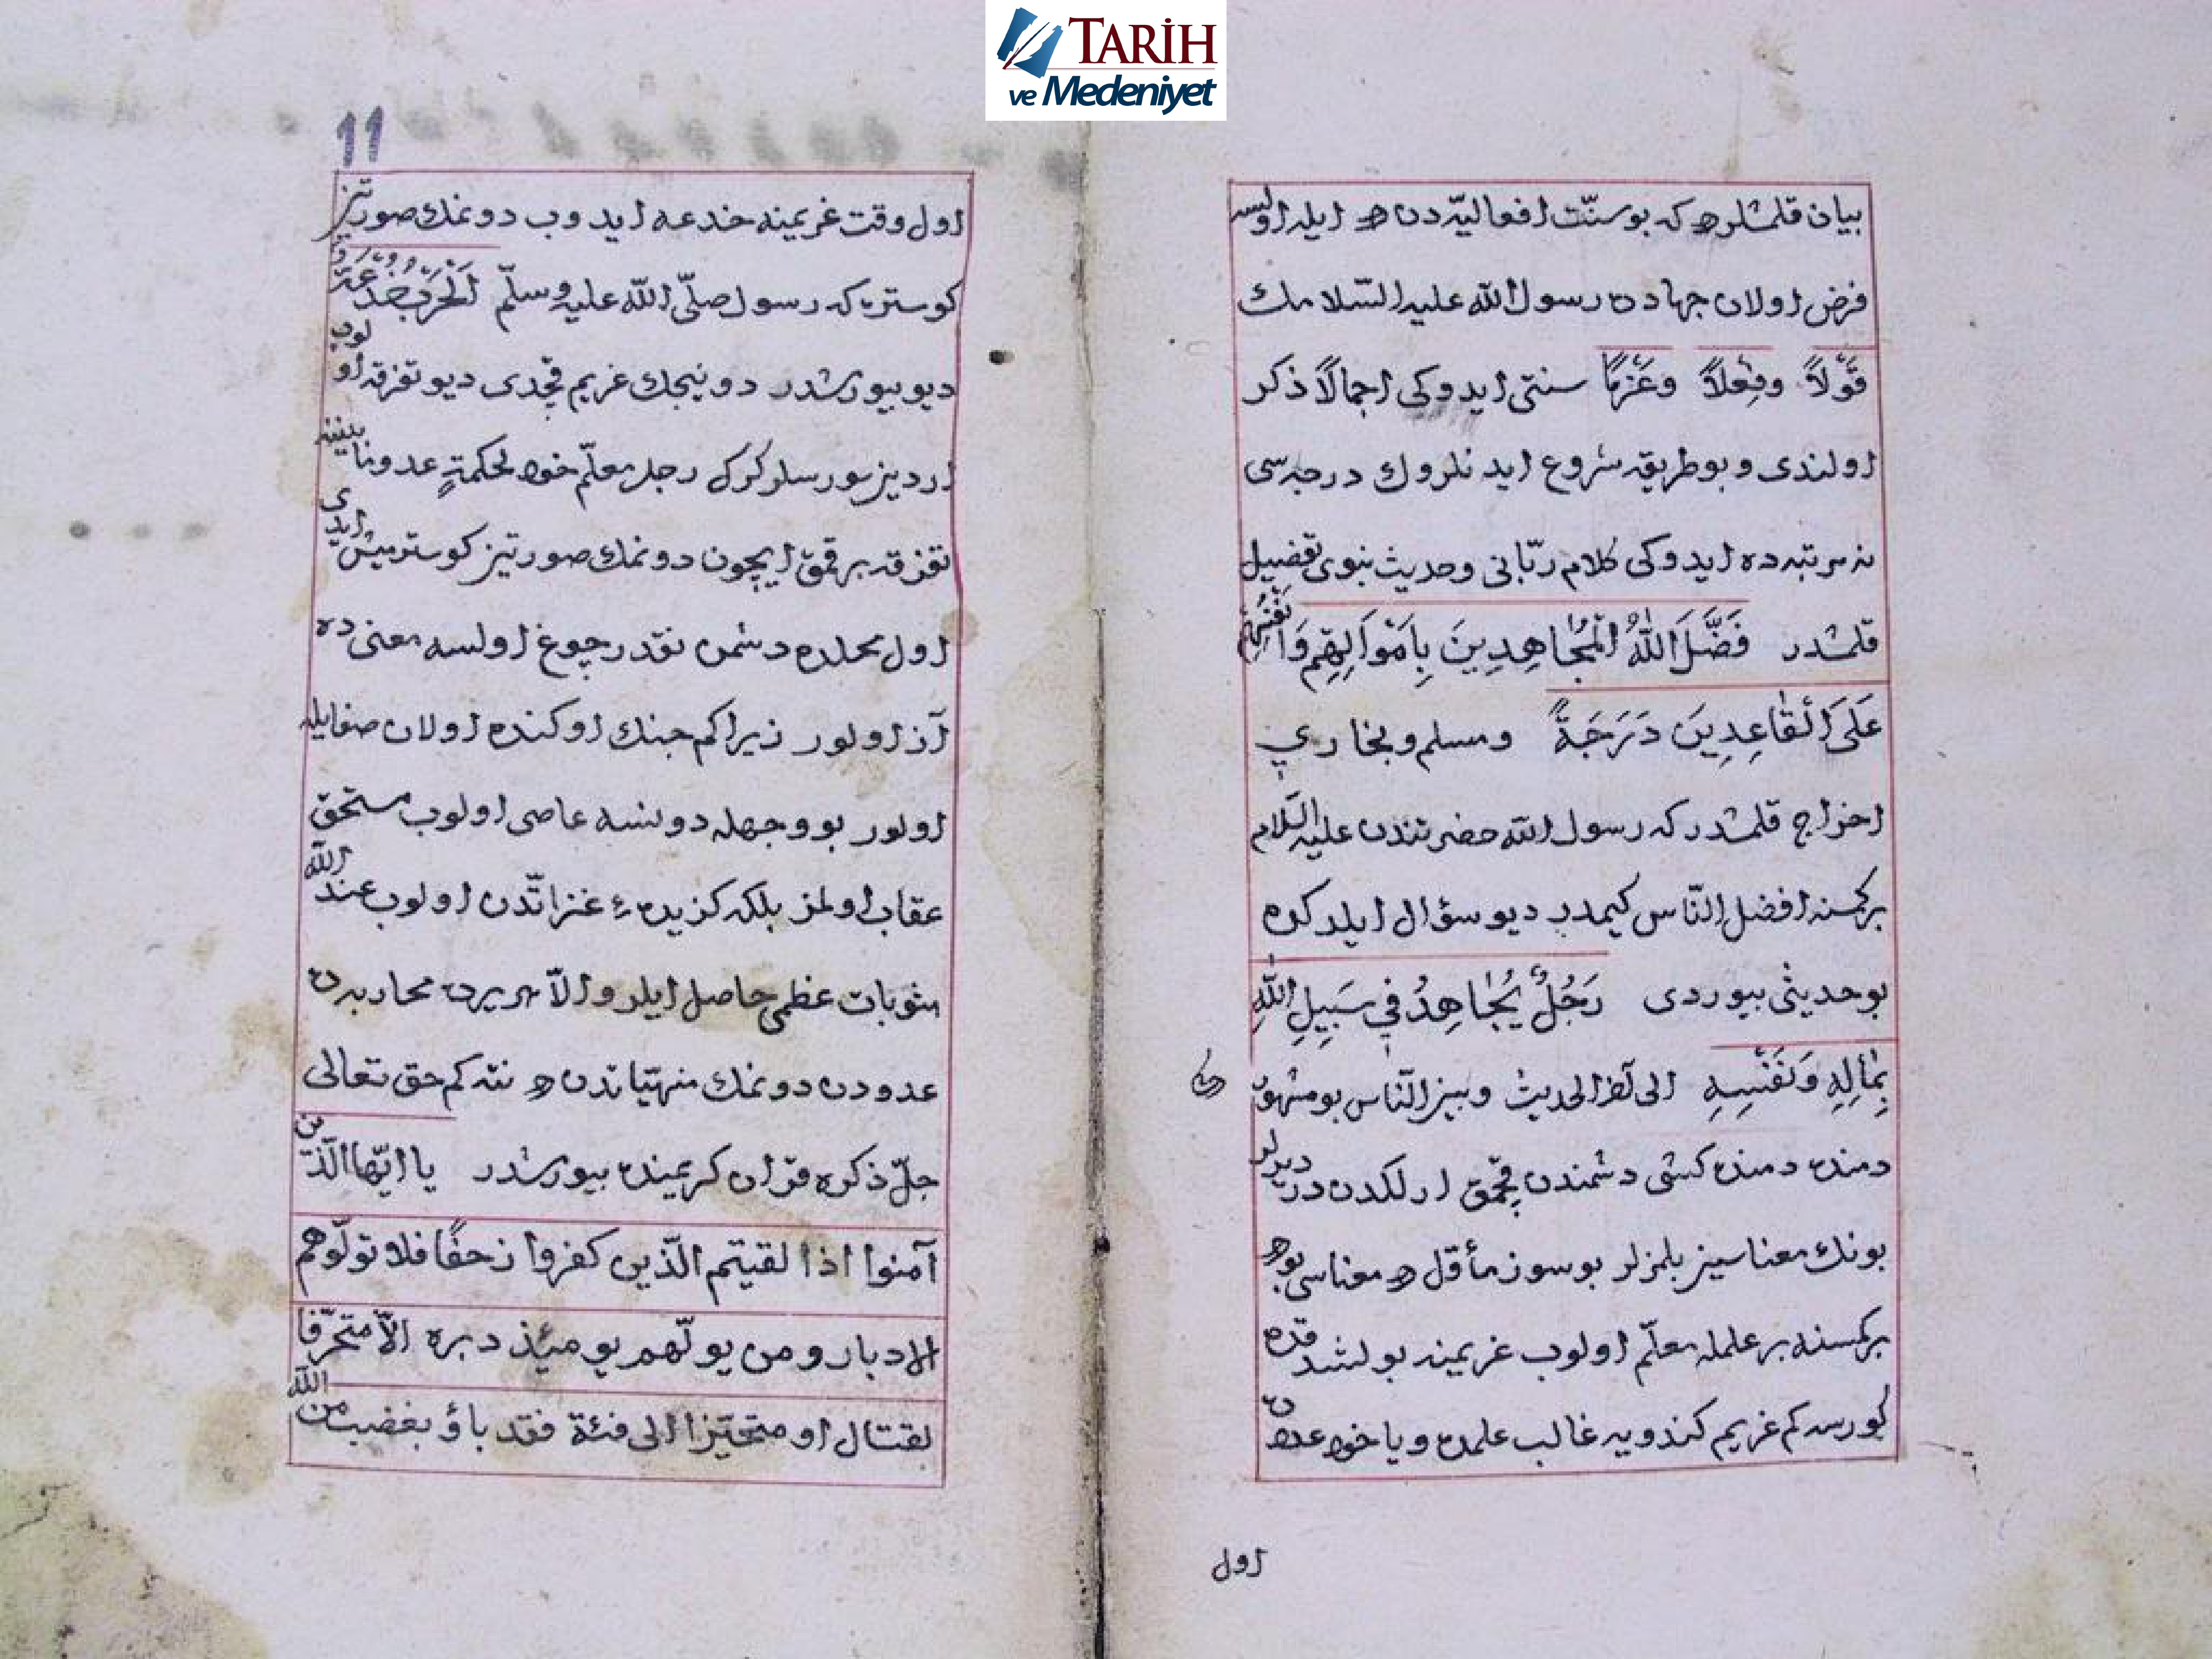 TARİH
ve Medeniyet
بيان قلمشلردر كه بو سنّت افعاليّه دندر ايله اولسه
فرض اولان جهادده رسول الله عليه السّلامك
قَوْلاً وفِعْلاً وعَزْمًا سنتى ايدوكى اجمالاً ذكر
اولندى وبو طريقه شروع ايدنلروك درجه سى
نه مرتبه ده ايدوكى كلام ربّانى وحديث نبوى تفضيل
قلمشدر فَضَّلَ اللهُ الْمُجَاهِدِينَ بِاَمْوَالِهِمْ وَاَنْفُسِهِمْ
عَلَى الْقَاعِدِينَ دَرَجَةً ومسلم وبخارى
اخراج قلمشدر كه رسول الله حضرتندن عليه السّلام
بركمسنه افضل النّاس كيمدر ديو سؤال ايلدكده
بو حديثى بيوردى رَجُلٌ يُجَاهِدُ فِي سَبِيلِ اللهِ
بِمَالِهِ وَنَفْسِهِ الى آخر الحديث وبين النّاس بو مشهور
دمنده دمنده كشى دشمندن قچمق ارلكدندر ديرلر
بونك معناسين بلمزلر بو سوز مأوّلدر معناسى بودر
بركمسنه بر علمله معلّم اولوب غريمينه بولشدقده
كورسه كم غريم كندويه غالب علمده ويا خود عددن
اول
11
اول وقت غريمينه خدعه ايدوب دونمك صورتين
كوستره كه رسول صلّى الله عليه وسلّم اَلْحَرْبُ خُدْعَةٌ
ديو بيورمشدر دونيجك غريم قچدى ديو تفرقه اولوب
اردينجه سورسلر كرك رجل معلّم خود لحكمةٍ عدونا بيننه
تفرقه برقمق ايچون دونمك صورتين كوسترمش ايدى
اول محلده دشمن نقدر چوغ اولسه معنى ده
آز اولور زيرا كم جنك اوكنده اولان صف ايله
اولور بو وجهله دونسه عاصى اولوب مستحق
عقاب اولمز بلكه كزيدهء غزاتّدن اولوب عند الله
مثوبات عظمى حاصل ايلر والاّ محاربه ده
عدودن دونمك منهيّاتدندر نته كم حق تعالى
جلّ ذكره قران كريمنده بيورمشدر يا ايّها الّذين
آمنوا اذا لقيتم الّذين كفروا زحفًا فلا تولّوهم
الادبار ومن يولّهم يومئذ دبره الاّ متحرّفا
لقتال او متحيّزا الى فئة فقد باؤ بغضب من الله